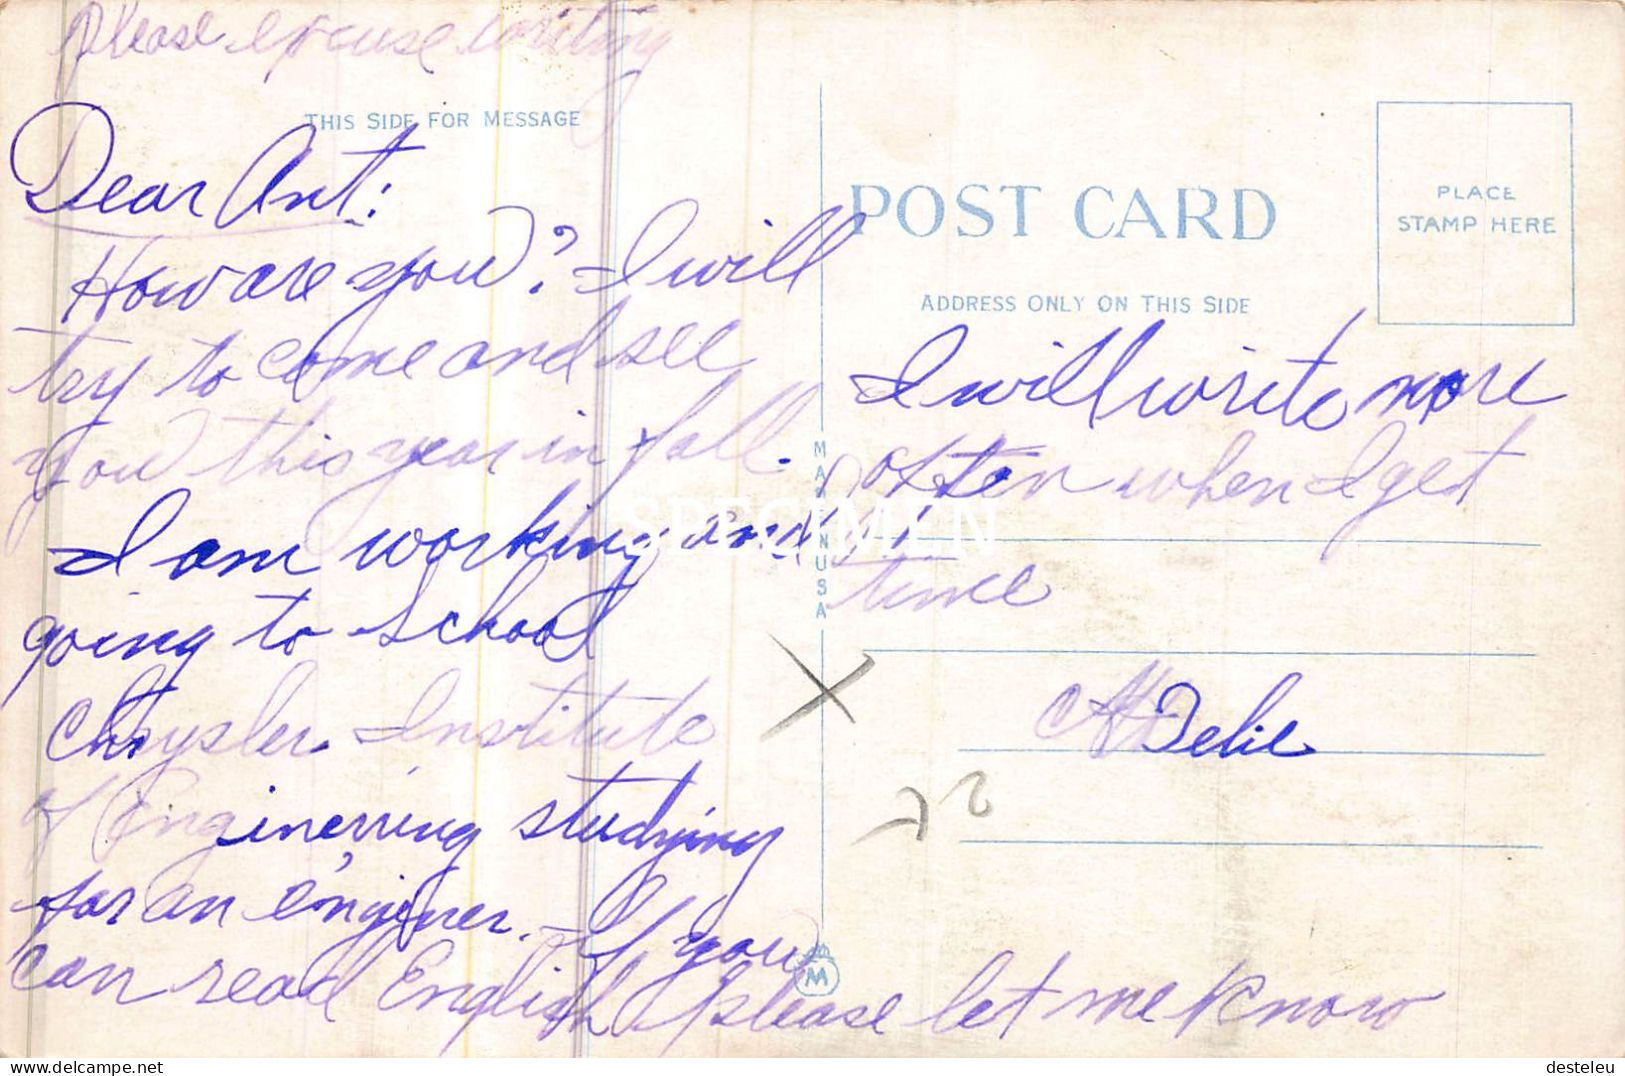 please excuse writing
THIS SIDE FOR MESSAGE
Dear Ant:
How are you? - I will
try to come and see
you this year in fall.
I am working and
going to school
Chrysler Institute
of Enginerring studying
for an enginer. - If you
can read English please let me know
POST CARD
PLACE
STAMP HERE
ADDRESS ONLY ON THIS SIDE
I will write more
often when I get
time
MADE IN USA
SPECIMEN
M
delcampe.net
desteleu